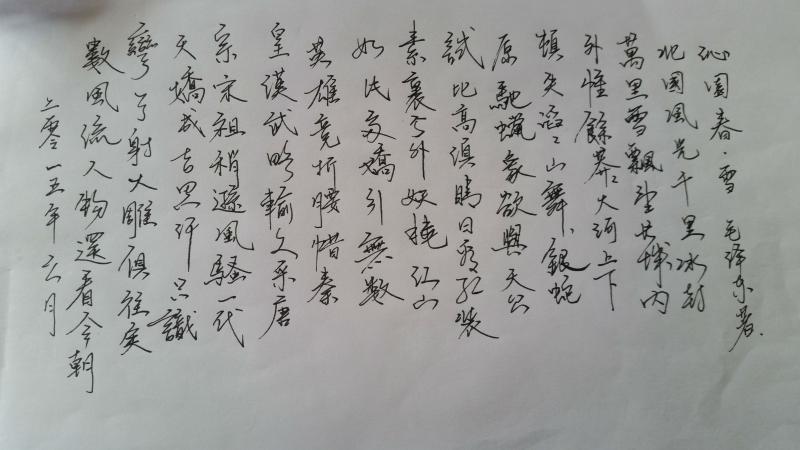 沁園春·雪 毛泽东著.
北國風光千里冰封
萬里雪飄望长城内
外惟餘莽々大河上下
頓失滔々山舞、銀蛇
原馳蠟象欲與天公
試比高須晴日看红装
素裹分外妖嬈江山
如此多嬌引無数
英雄竞折腰惜秦
皇漢武略輸文采唐
宗宋祖稍遜風騷一代
天嬌成吉思汗只識
彎弓射大雕俱往矣
數風流人物還看今朝
二零一五年六月